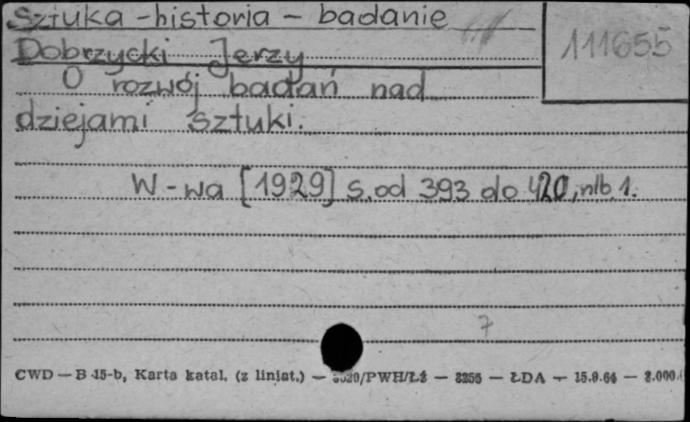 Sztuka - historia - badanie
111655
Dobrzycki Jerzy
O rozwój badań nad
dziejami sztuki.
W-wa [1929] s. od 393 do 420, nlb. 1.
7
CWD — B 15-b, Karta katal. (z liniat.) — /PWH/Łż — 8255 — ŁDA — 15.9.64 — 2.000.